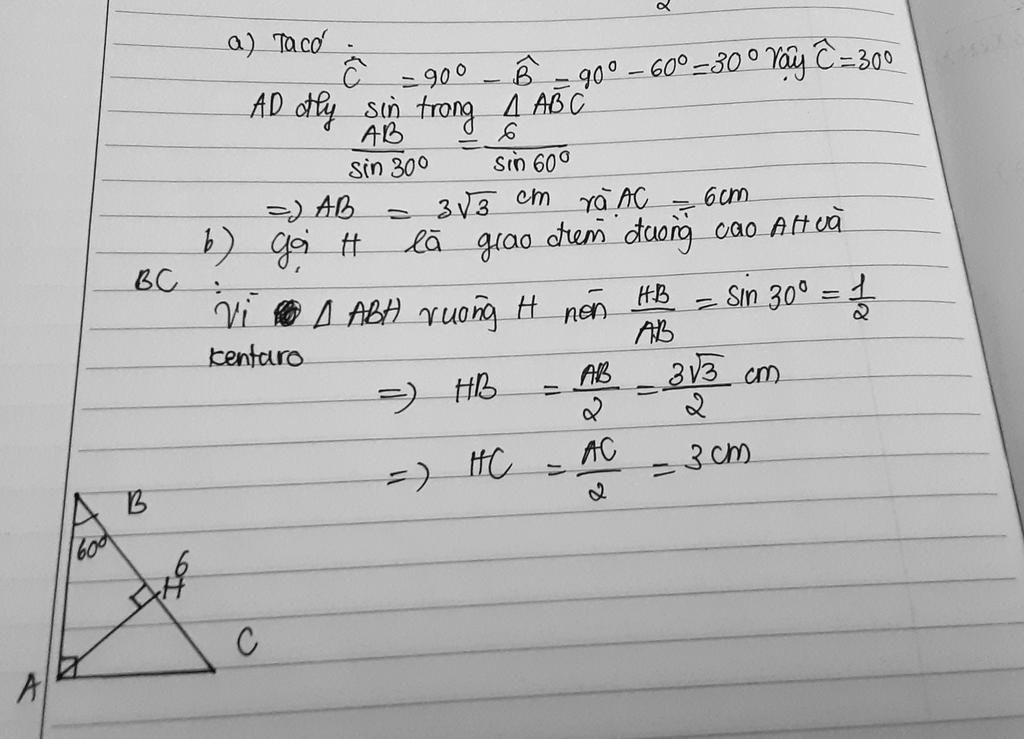 a) Ta có :
Ĉ = 90° - B̂ = 90° - 60° = 30° Vậy Ĉ = 30°
AD đly sin trong Δ ABC
AB/sin 30° = 6/sin 60°
=> AB = 3√3 cm và AC = 6cm
b) gọi H là giao điểm đường cao AH và
BC :
Vì Δ ABH vuông H nên HB/AB = sin 30° = 1/2
kentaro
=> HB = AB/2 = 3√3/2 cm
=> HC = AC/2 = 3 cm
B
60°
6
H
C
A